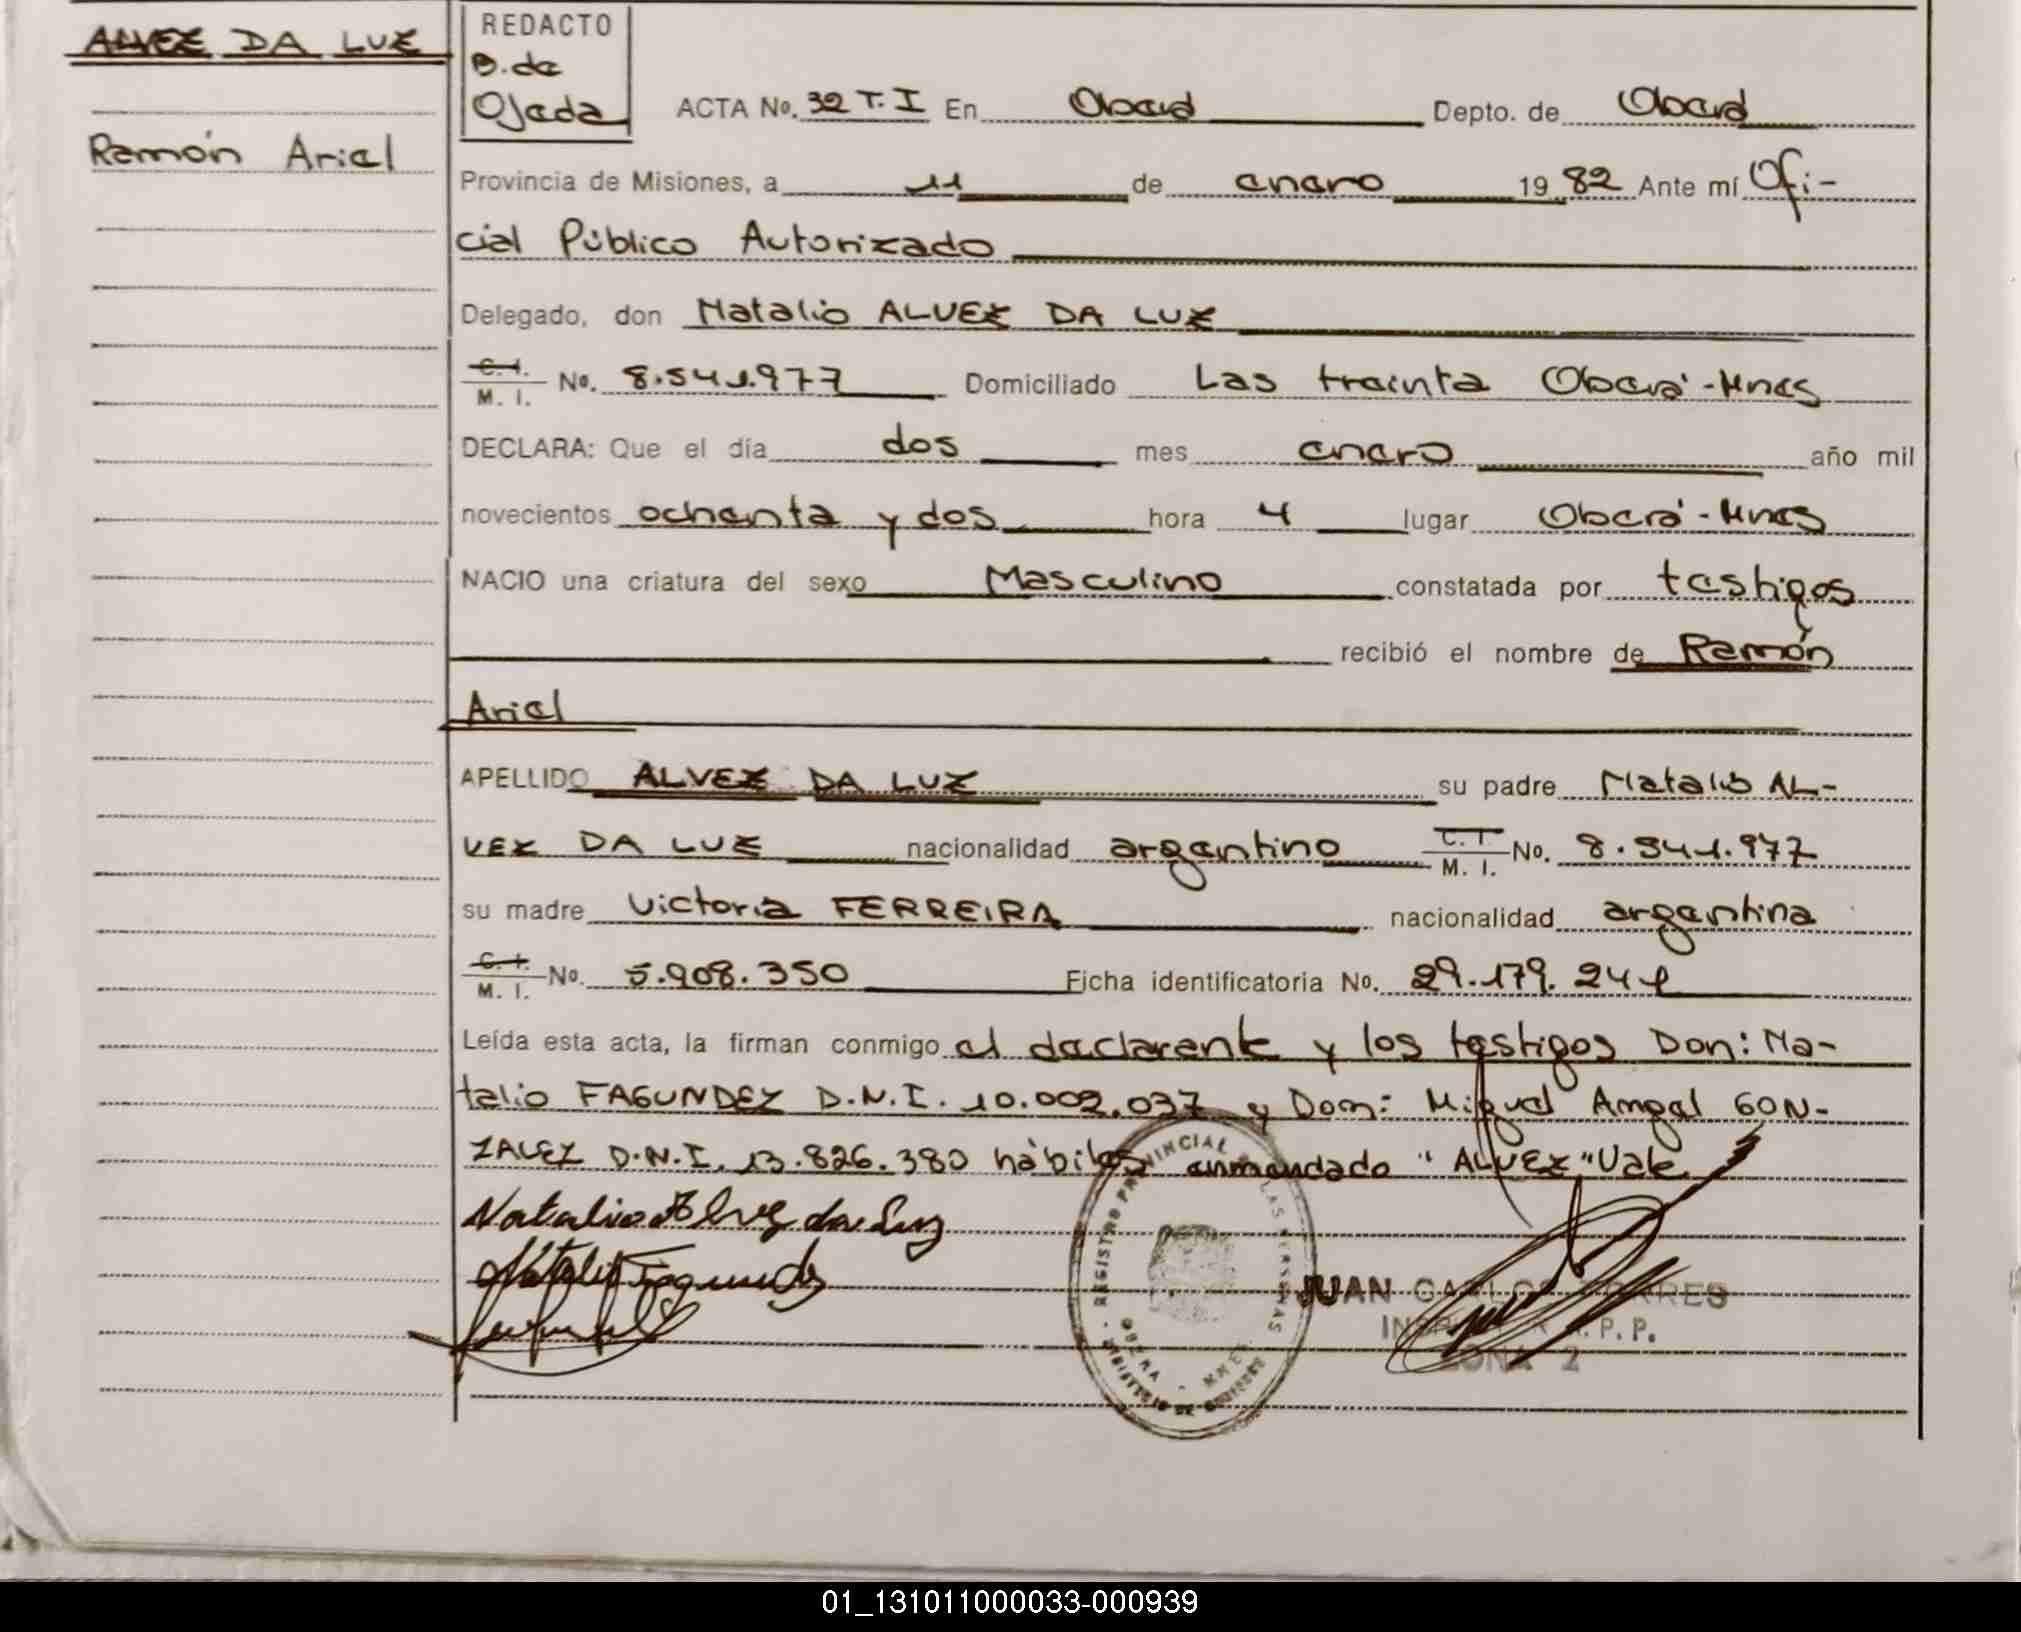 ALVEZ DA LUZ
Ramón Ariel
REDACTO
B. de
Ojeda
ACTA No. 32 T. I En Oberá Depto. de Oberá
Provincia de Misiones, a 11 de enero 1982 Ante mí Ofi-
cial Público Autorizado
Delegado, don Natalio ALVEZ DA LUZ
C. I.
M. I. No. 8.541.977 Domiciliado Las treinta Oberá-Mnes
DECLARA: Que el día dos mes enero año mil
novecientos ochenta y dos hora 4 lugar Oberá-Mnes
NACIO una criatura del sexo Masculino constatada por testigos
recibió el nombre de Ramón
Ariel
APELLIDO ALVEZ DA LUZ su padre Natalio AL-
VEZ DA LUZ nacionalidad argentino C. I.
M. I. No. 8.541.977
su madre Victoria FERREIRA nacionalidad argentina
C. I.
M. I. No. 5.908.350 Ficha identificatoria No. 29.179.241
Leída esta acta, la firman conmigo el declarante y los testigos Don: Na-
talio FAGUNDEZ D.N.I. 10.002.037 y Don: Miguel Angel GON-
ZALEZ D.N.I. 13.826.380 hábiles enmendado "ALVEZ" Vale.
Natalio Alvez da Luz
Natalio Fagundez
REGISTRO PROVINCIAL DE LAS PERSONAS
OBERA - MNES
MINISTERIO DE GOBIERNO
JUAN CARLOS TORRES
INSPECTOR R. P. P.
ZONA 2
01_131011000033-000939